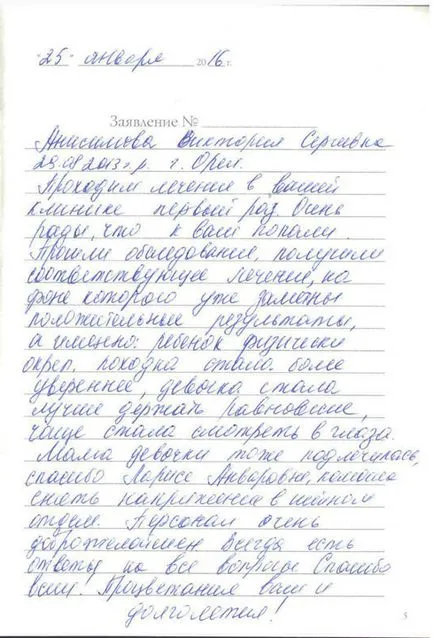 "25" января 2016 г.
Заявление №
Анисимова Виктория Сергеевна
29.08.2013 г.р. г. Орел.
Проходим лечение в вашей
клинике первый раз. Очень
рады, что к вам попали.
Прошли обследования, получили
соответствующее лечение, на
фоне которого уже заметны
положительные результаты,
а именно: ребенок физически
окреп. походка стала более
увереннее, девочка стала
лучше держать равновесие,
чаще стала смотреть в глаза.
Мама девочки тоже подлечилась,
спасибо Ларисе Анваровне, помогла
снять напряжение в шейном
отделе. Персонал очень
доброжелателен всегда есть
ответы на все вопросы Спасибо
всем. Процветания вам и
долголетия!
5